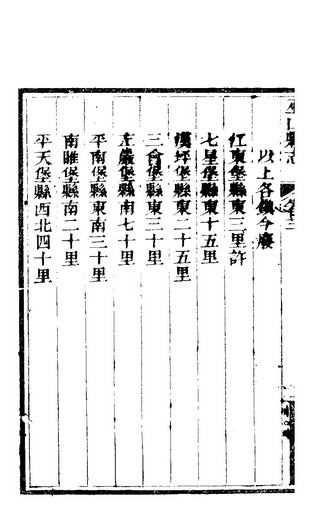 以上各鎮今廢
江東堡縣東三里許
七星堡縣東十五里
漢坪堡縣東二十五里
三會堡縣東三十里
王嚴堡縣南七十里
平南堡縣東南三十里
南睢堡縣南二十里
平天堡縣西北四十里